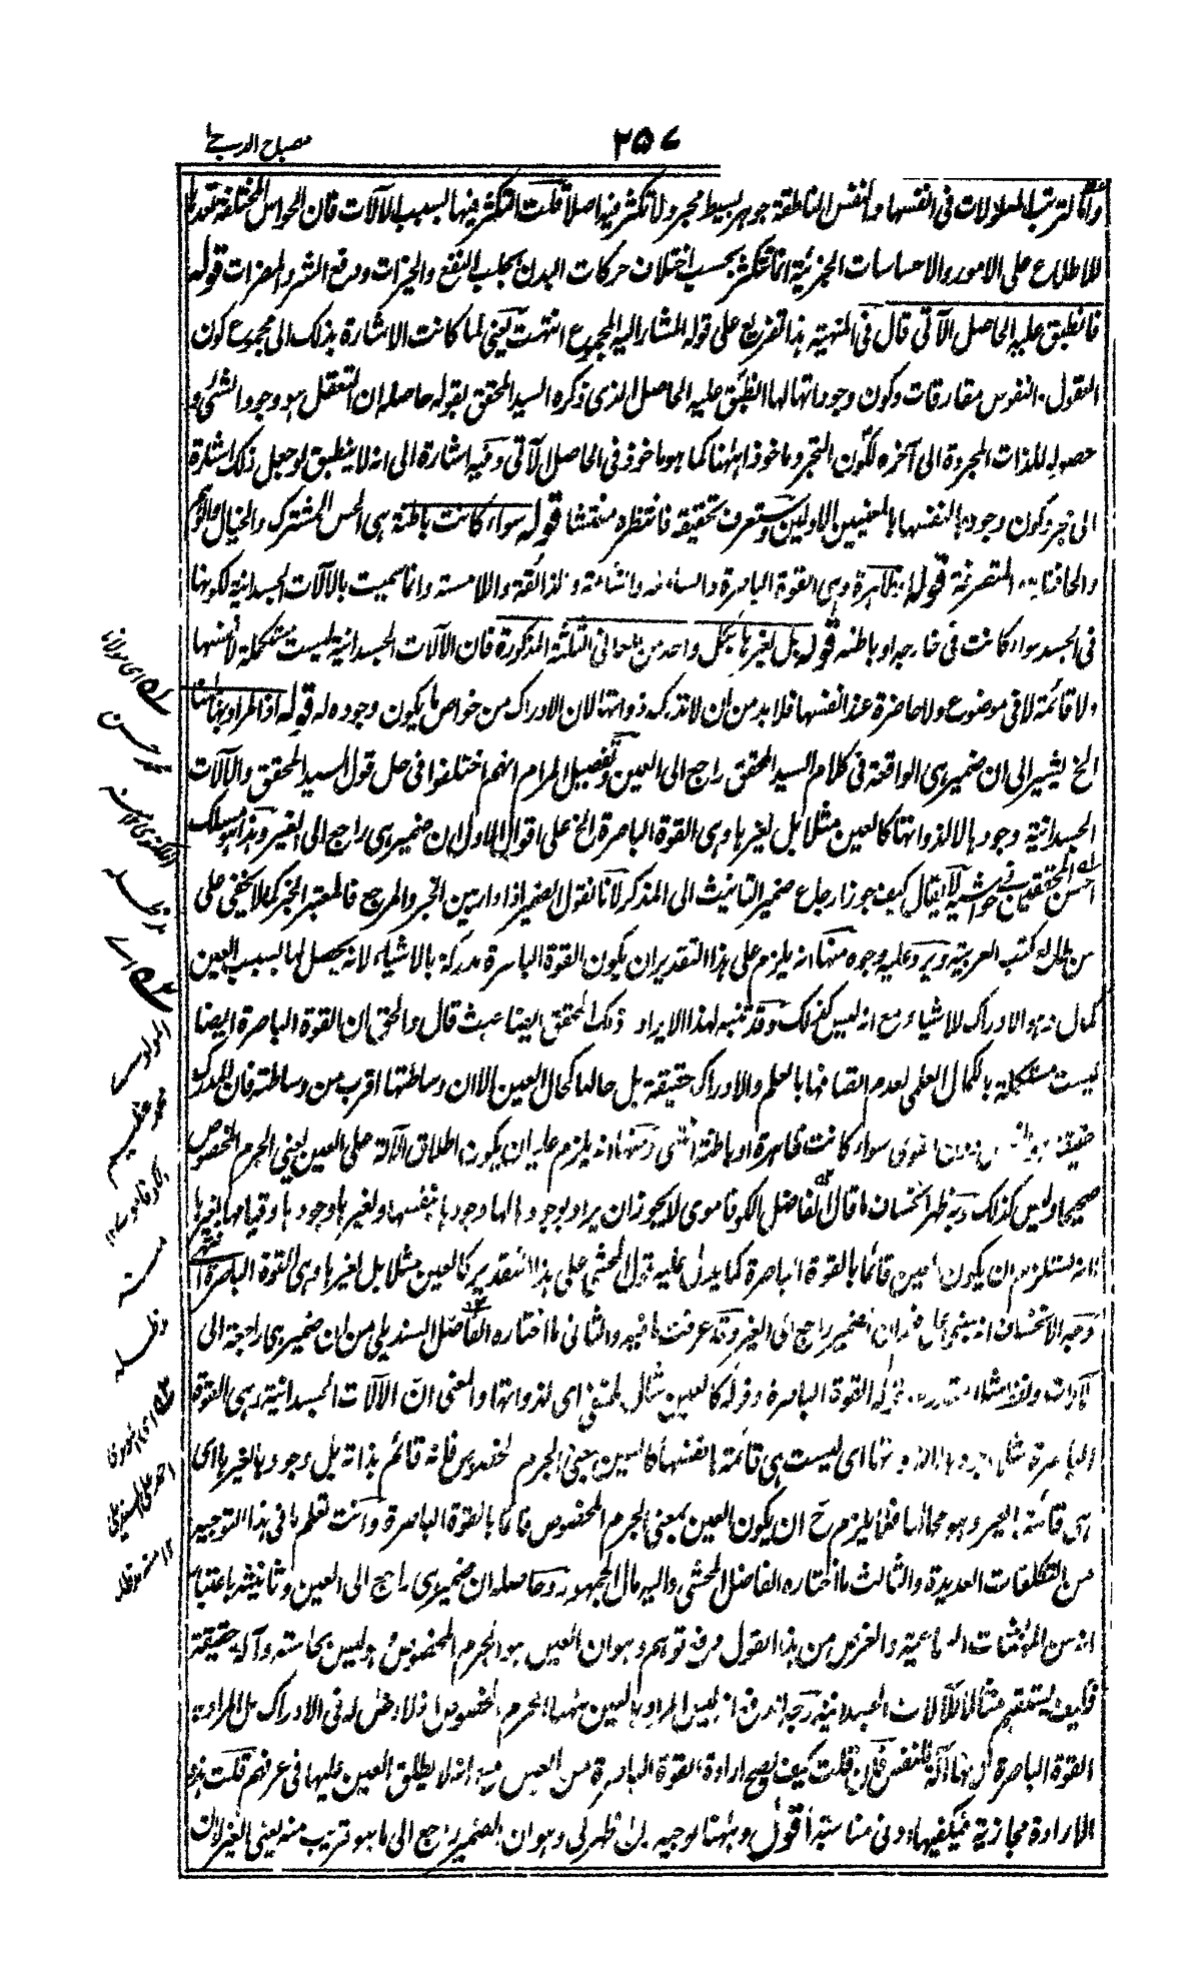 ٢٥٧
مصباح الدجى
وانما لترتب المعلولات فى انفسها والنفس الناطقة جوهر بسيط مجرد لا تكثر فيه اصلا قلت التكثر فيها بسبب الآلات فان الحواس المختلفة تعدها
للاطلاع على الامور والاحساسات الجزئية انما تتكثر بحسب اختلاف حركات البدن بجلب النفع والخيرات ودفع الشر والمضرات قوله
فانطبق عليه الحاصل الآتى قال فى المنهية هذا تفريع على قوله المشار اليه المجموع انتهت يعنى لما كانت الاشارة بذلك الى مجموع كون
العقول والنفوس مفارقات وكون وجوداتها لها انطبق عليه الحاصل الذى ذكره السيد المحقق بقوله حاصله ان التعقل هو وجود الشئ و
حصوله للذات المجردة الى آخره لكون التجرد ماخوذا ههنا كما هو ماخوذ فى الحاصل الآتى وفيه اشارة الى انه لا ينطبق لو جعل ذلك اشارة
الى نحو كون وجودها لنفسها بالمعنيين الاولين وستعرف تحقيقه فانتظره مفتشا قوله سواء كانت باطنة هى الحس المشترك والخيال والوهم
والحافظة والمتصرفة قوله او ظاهرة وهى القوة الباصرة والسامعة والشامة والذائقة واللامسة وانما سميت بالآلات الجسدانية لكونها
فى الجسد سواء كانت فى خارجه او باطنه قوله بل لغيرها بكل واحد من المعانى الثلثة المذكورة فان الآلات الجسدانية ليست مستكملة لانفسها
ولا قائمة لا فى موضوع ولا حاضرة عند انفسها فلا بد من ان لا تدرك ذواتها لان الادراك من خواص ما يكون وجوده له قوله اذ المراد بها ههنا
الخ يشير الى ان ضمير هى الواقعة فى كلام السيد المحقق راجع الى العين وتفصيل المرام انهم اختلفوا فى حل قول السيد المحقق والآلات
الجسدانية وجودها لا لذواتها كالعين مثلا بل لغيرها وهى القوة الباصرة الخ على اقوال الاول ان ضمير هى راجع الى الغير وهذا هو مسلك
احسن المحققين فى حواشيه لا يقال كيف جوز ارجاع ضمير التانيث الى المذكر لانا نقول الضمير اذا دار بين الخبر والمرجع فالمعتبر الخبر كما لا يخفى على
من طالع كتب العربية ويرد عليه وجوه منها انه يلزم على هذا التقدير ان يكون القوة الباصرة مدركة بالاشياء لانه يحصل لها بسبب العين
كمال وهو الادراك للاشياء مع انه ليس كذلك وقد تنبه لهذا الايراد ذلك المحقق ايضا حيث قال والحق ان القوة الباصرة ايضا
ليست مستكملة بالكمال العلمى لعدم اتصافها بالعلم والادراك حقيقة بل حالها كحال العين الا ان وساطتها اقرب من وساطته فان المدرك
حقيقة هو النفس دون القوى سواء كانت ظاهرة او باطنة انتهى ومنها انه يلزم عليه ان يكون اطلاق الآلة على العين يعنى الجرم المخصوص
صحيحا وليس كذلك وبه ظهر انخساف ما قال الفاضل الكوفاموى لا يجوز ان يراد بوجودها لها وجودها بنفسها ولغيرها وجودها وقيامها بغيرها
لانه يستلزم ان يكون العين قائما بالقوة الباصرة كما يدل عليه قول المحشى على هذا التقدير كالعين مثلا بل لغيرها وهى القوة الباصرة انتهى
وجه الانخساف انه مبنى على ان الضمير راجع الى الغير وقد عرفت ما فيه والثانى ما اختاره الفاضل السنديلى من ان ضمير هى راجعة الى
الآلات القوة الباصرة وقوله كالعين مثال للمنفى اى لذواتها والمعنى ان الآلات الجسدانية وهى القوة
الباصرة مثلا اى ليست هى قائمة بانفسها كالعين بمعنى الجرم المخصوص فانه قائم بذاته بل وجودها لغيرها اى
هى قائمة بالغير وهو محالها فلا يلزم ح ان يكون العين بمعنى الجرم المخصوص قائما بالقوة الباصرة وانت تعلم ما فى هذا التوجيه
من التكلفات العديدة والثالث ما اختاره الفاضل المحشى واليه مال الجمهور وحاصله ان ضمير هى راجع الى العين وتانيثه باعتبار
انه من المؤنثات السماعية والغرض من هذا القول دفع توهم وهو ان العين هو الجرم المخصوص وليس بحاسة وآلة حقيقة
فكيف يستقيم مثالا للآلات الجسدانية وجه الدفع انه ليس المراد بالعين ههنا الجرم المخصوص اذ لا دخل له فى الادراك بل المراد به
القوة الباصرة لانها آلة للنفس فان قلت كيف يصح ارادة القوة الباصرة من العين مع انه لا يطلق العين عليها فى عرفهم قلت هذه
الارادة مجازية فيكفيها ادنى مناسبة اقول وههنا توجيه ظهر لى وهو ان الضمير راجع الى ما هو قريب منه يعنى الغير لان
له اى مولانا
محمد حسن
اللكنوى
له اى
المولوى
محمد عظيم
الكوفاموى ١٢
منه
مد ظله
له اى المولوى
احمد على السنديلى
١٢ منه مد ظله